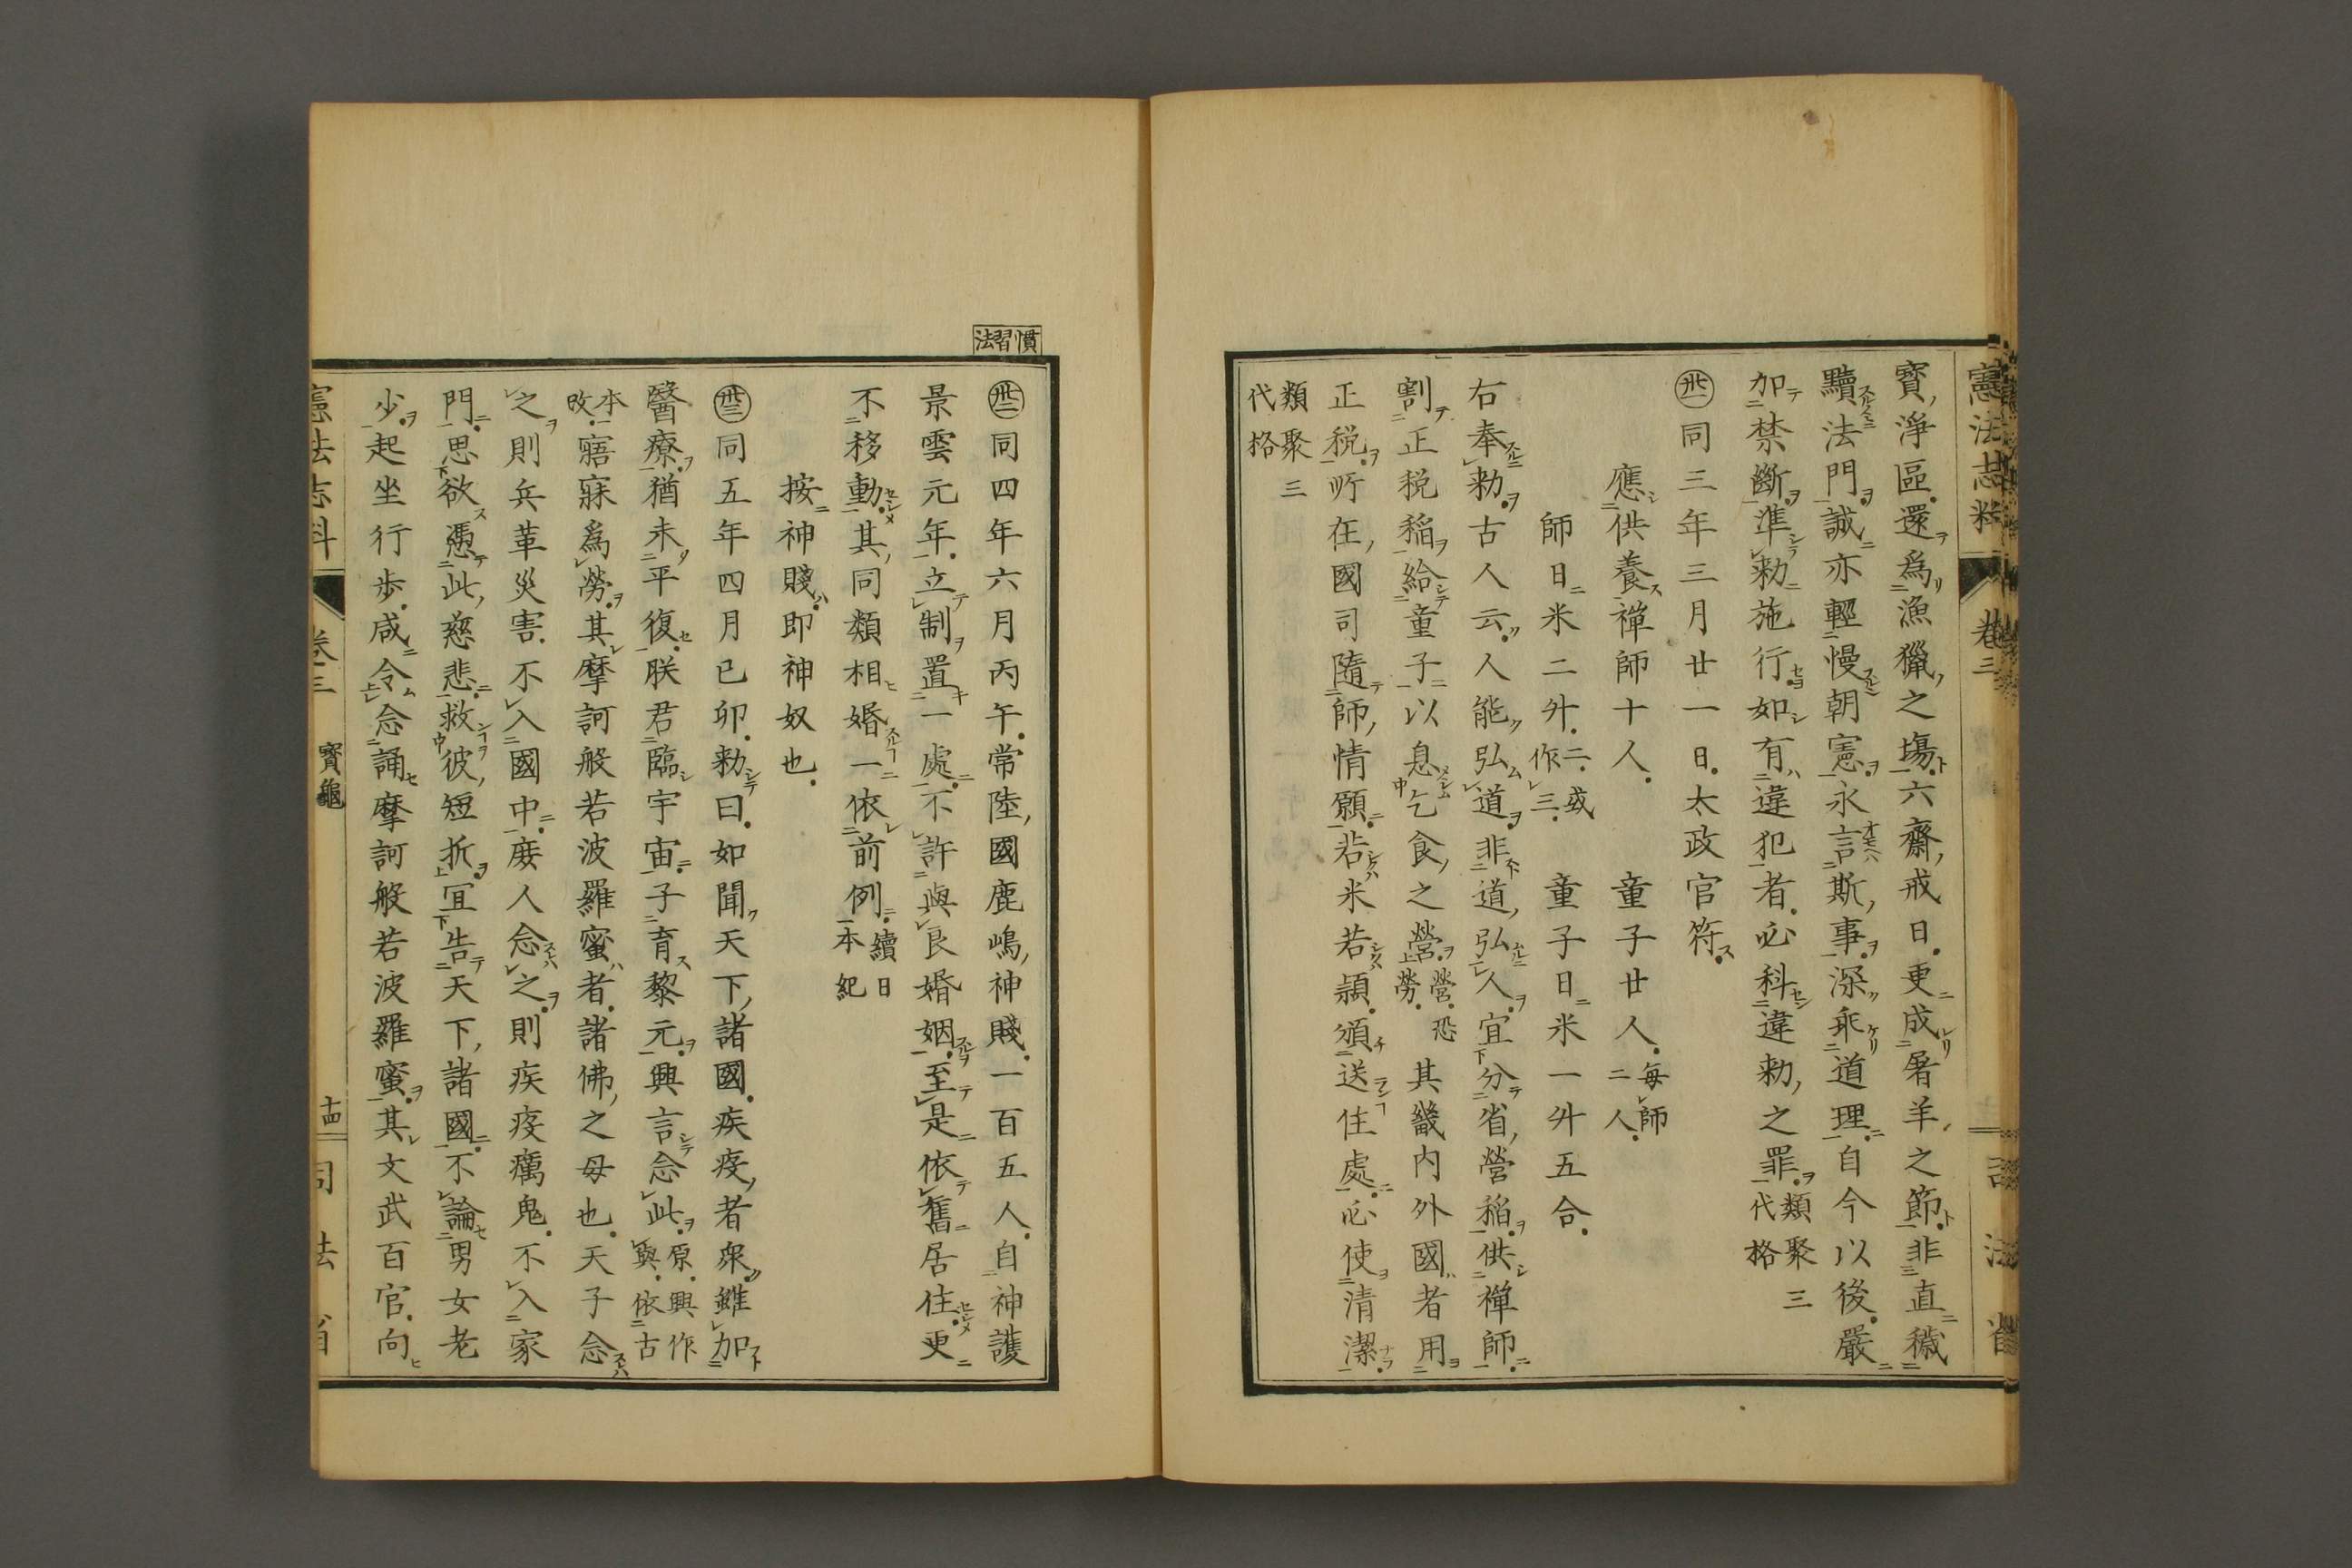 憲法志料 卷三
寶淨區還爲漁獵之場六齋戒日更成屠羊之節非直穢
黷法門誠亦輕慢朝憲永言斯事深乖道理自今以後嚴
加禁斷準勅施行如有違犯者必科違勅之罪類聚三代格
卅一同三年三月廿一日太政官符
應供養禅師十人 童子廿人每師二人
師日米二升二或作三 童子日米一升五合
右奉勅古人云人能弘道非道弘人宜分省營稲供禅師
割正税稲給童子以息乞食之營營恐勞其畿内外國者用
正税所在國司隨師情願若米若穎頒送住處必使清潔
類聚三代格
慣習法
卅二同四年六月丙午常陸國鹿嶋神賤一百五人自神護
景雲元年立制置一處不許與良婚姻至是依舊居住更
不移動其同類相婚一依前例續日本紀
按神賤即神奴也
卅三同五年四月已卯勅曰如聞天下諸國疾疫者衆雖加
醫療猶未平復朕君臨宇宙子育黎元興言念此原興作與依古
本改寤寐爲勞其摩訶般若波羅蜜者諸佛之母也天子念
之則兵革災害不入國中庶人念之則疾疫癘鬼不入家
門思欲憑此慈悲救彼短折宜告天下諸國不論男女老
少起坐行歩咸令念誦摩訶般若波羅蜜其文武百官向
憲法志料 卷三 寶龜 十四 司法省